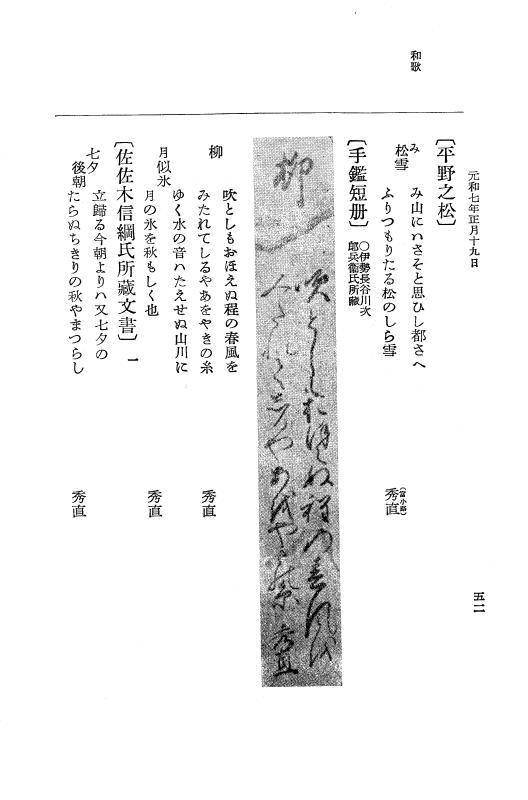 和歌
元和七年正月十九日
五二
〔平野之松〕
み山にハさそと思ひし都さへ
松雪
ふりつもりたる松のしら雪
(富小路)
秀直
〔手鑑短册〕
〇伊勢長谷川次
郎兵衞氏所藏
柳
吹としもおほえぬ程の春風を
みたれてしるやあをやきの糸 秀直
柳
吹としもおほえぬ程の春風を
みたれてしるやあをやきの糸
秀直
ゆく水の音ハたえせぬ山川に
月似氷
月の氷を秋もしく也
秀直
〔佐佐木信綱氏所藏文書〕 一
七夕
後朝
立歸る今朝よりハ又七夕の
たらぬちきりの秋やまつらし
秀直